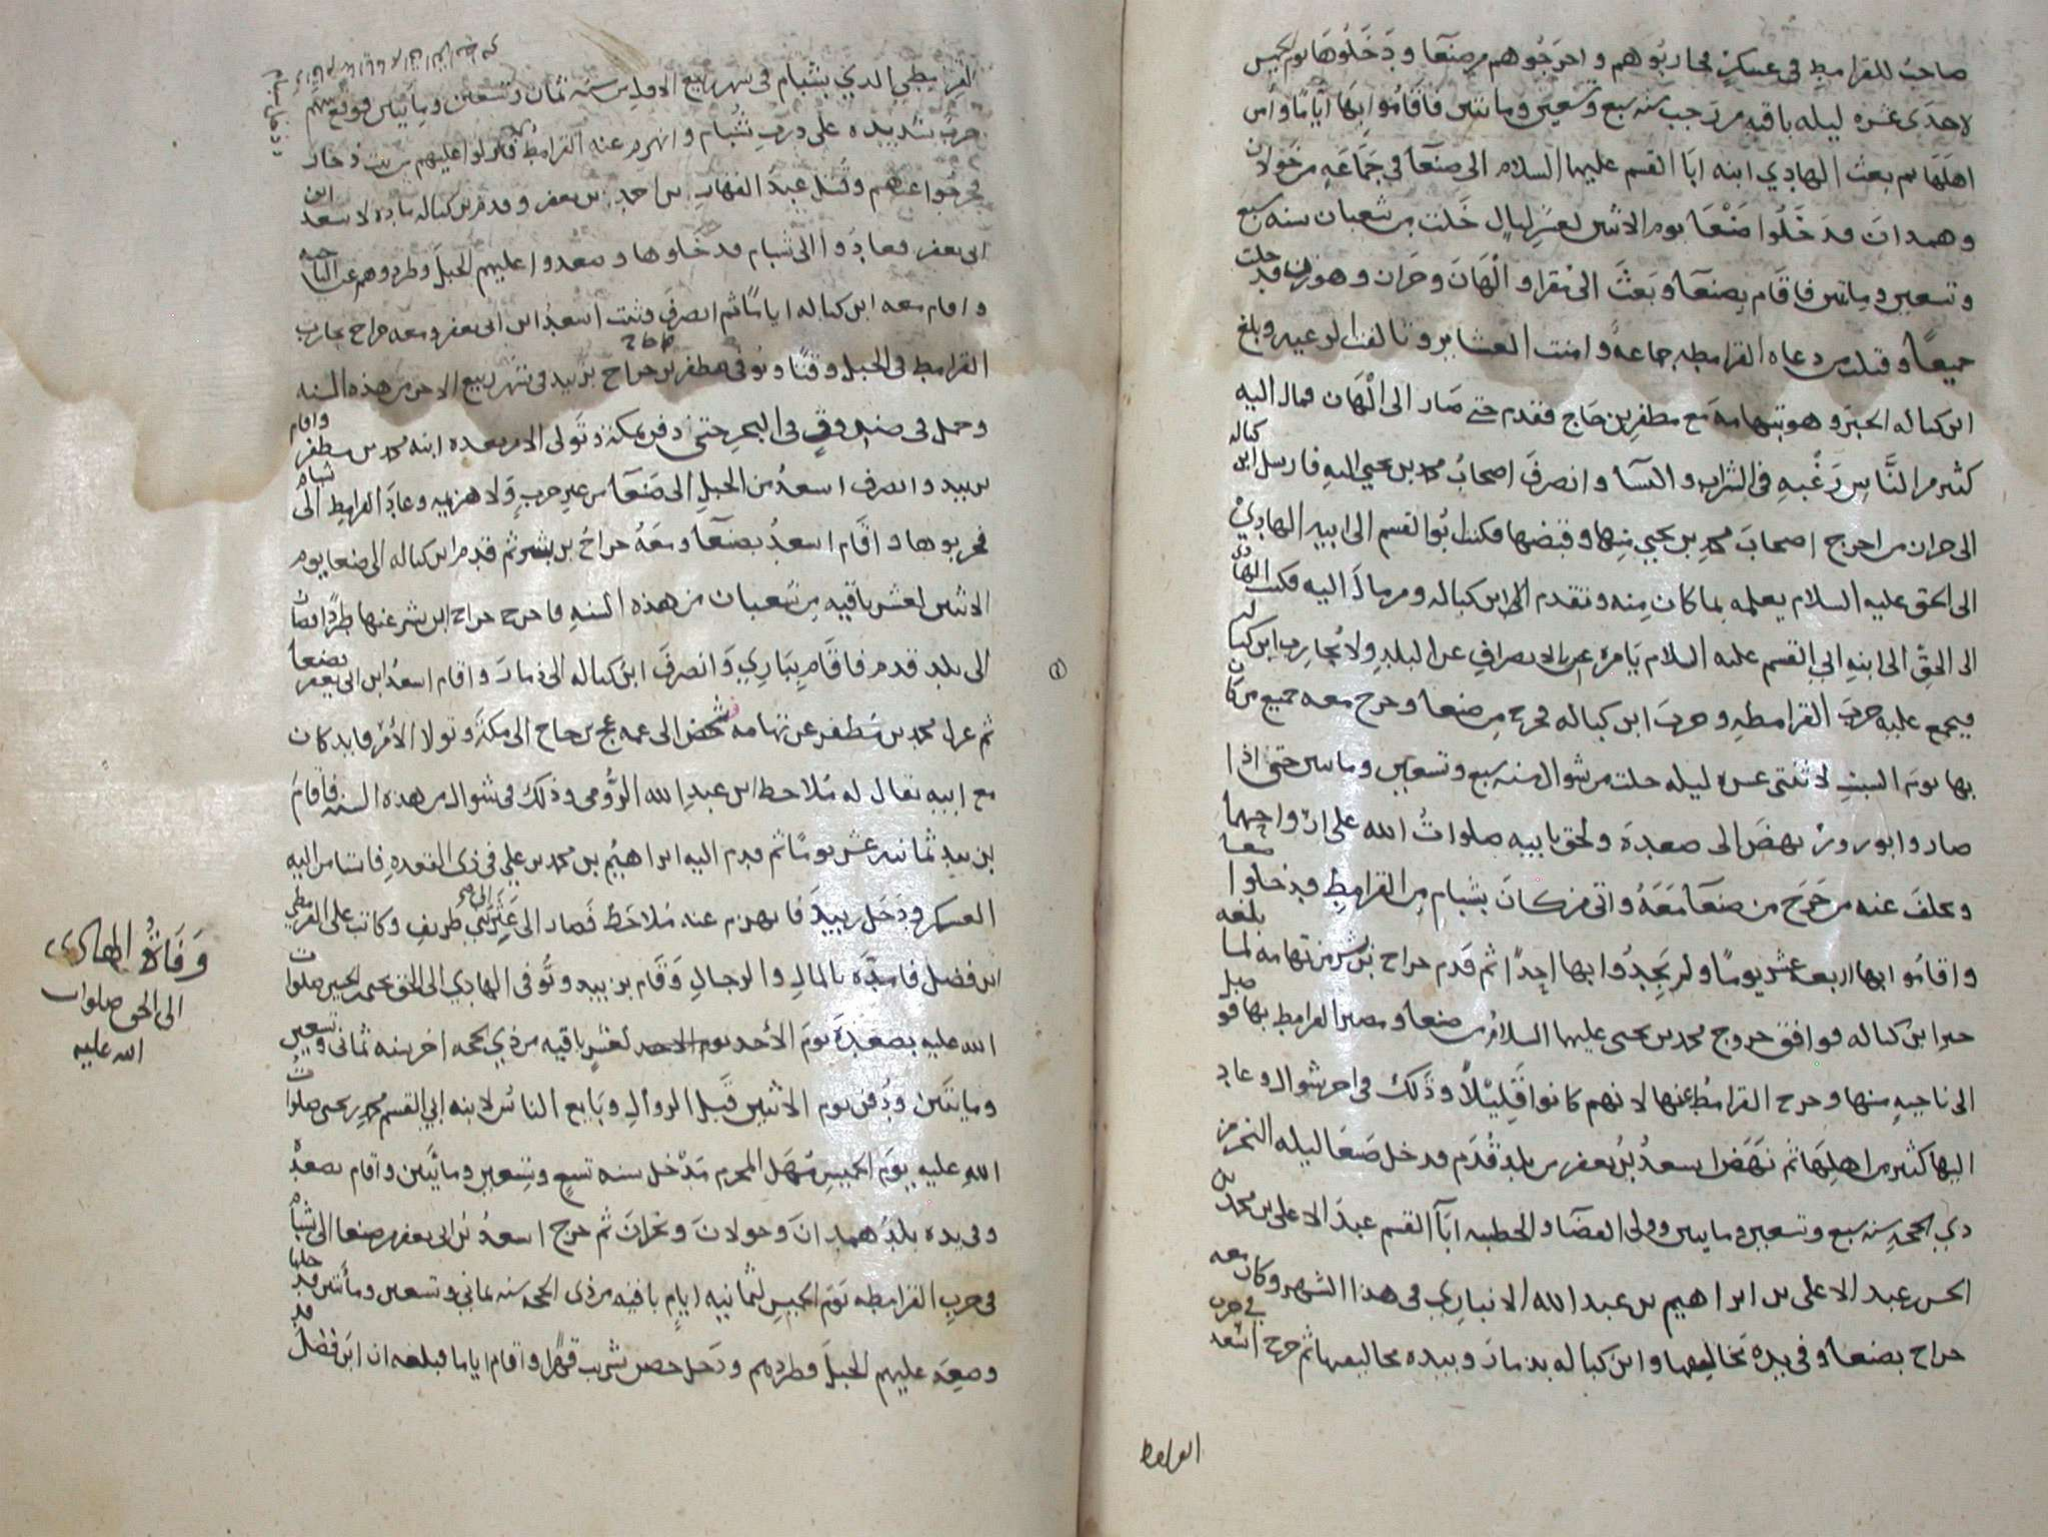 صاحب للقرامطه في عسكر فحاربوهم واخرجوهم من صنعا ودخلوها يوم الخميس
لاحدى عشره ليله باقيه من رجب سنه سبع وتسعين ومائتين فاقاموا بها اياما وامن
اهلها ثم بعث الهادي ابنه ابا القسم عليهما السلام الى صنعا في جماعه من خولان
وهمدان فدخلوا صنعا يوم الاثنين لعشر ليال خلت من شعبان سنه سبع
وتسعين ومائتين فاقام بصنعا وبعث الى مقرا والهان وحران وهوزن فدخلت
جميعا وقتلت من دعاه القرامطه جماعة وامنت العشاير وتالفت الرعيه وبلغ
ابن كباله الخبر وهو بتهامه مع مظفر بن حاج فتقدم حتى صار الى الهان فمال اليه
كثير من الناس رغبه في الشراب والنسا وانصرف اصحاب محمد بن يحيى اليه فارسل ابن كباله
الى حران من اخرج اصحاب محمد بن يحيى منها وقبضها فكتب ابو القسم الى ابيه الهادي
الى الحق عليه السلام يعلمه بما كان منه وتقدم الى ابن كباله ومن مال اليه فكتب الهادي
الى الحق الى ابنه ابي القسم عليه السلام يامره بالانصراف عن البلد ولا يحارب ابن كباله
فيجمع عليه حرب القرامطه وحرب ابن كباله فخرج من صنعا وخرج معه جميع من كان
بها يوم السبت لاثنتى عشره ليله خلت من شوال سنه سبع وتسعين ومائتين حتى اذا
صار وابورور نهض الى صعدة ولحق بابيه صلوات الله على ارواحهما
وتخلف عنه من خرج من صنعا معه واتى من كان بشبام من القرامط فدخلوا صنعا
واقاموا بها اربعة عشر يوما ولم يجدوا بها احدا ثم قدم جراح بن بشر من تهامه لما بلغه
خبر ابن كباله فوافق خروج محمد بن يحيى عليهما السلام من صنعا ومصير القرامط بها فوصل
الى ناحيه منها وخرج القرامط عنها لانهم كانوا قليلا وذلك في اخر شوال وعاد
اليها كثير من اهلها ثم نهض اسعد بن يعفر من بلد قدم فدخل صنعا ليله النحر من
ذي الحجه سنه سبع وتسعين ومايتين وولى القضا والخطبه ابا القسم عبد الاعلى بن محمد بن
الحسن عبد الاعلى بن ابراهيم بن عبد الله الانباري في هذا الشهر وكان معه
جراح بصنعا وفي يده مخاليفها وابن كباله بذمار وبيده مخاليفها ثم خرج اسعد في حرب
القرامط
القرمطي الذي بشبام في شهر ربيع الاول من سنه ثمان وتسعين ومايتين فوقع بينهم
حرب شديده على درب شبام وانهزم عنه القرامط فنزلوا عليهم من بيت ذخار
فخرجوا عنهم وقتل عبد القهار بن احمد بن يعفر وقدم بن كباله ماده لاسعد ابن
ابي يعفر فعادوا الى شبام فدخلوها وصعدوا عليهم الجبل وطردوهم عن الناحيه
واقام معه ابن كباله اياما ثم انصرف وثبت اسعد ابن ابي يعفر ومعه جراح يحارب
القرامط في الجبل وقتا وتوفى مظفر بن حاج بزبيد في شهر ربيع الاخر من هذه السنه
وحمل في صندوق في البحر حتى دفن بمكة وتولى الامر بعده ابنه محمد بن مظفر واقام
بزبيد وانصرف اسعد من الجبل الى صنعا من غير حرب ولا هزيمه وعاد القرامط الى شبام
فخربوها واقام اسعد بصنعا ومعه جراح بن بشر ثم قدم ابن كباله الى صنعا يوم
الاثنين لعشر باقيه من شعبان من هذه السنه فاخرج جراح ابن بشر عنها طردا فصار
الى بلد قدم فاقام ببَاري وانصرف ابن كباله الى ذمار واقام اسعد ابن ابي يعفر بصنعا
ثم عزل محمد بن مظفر عن تهامه شخص الى عمه عج بن حاج الى مكة وتولا الأمر قايد كان
مع ابيه يقال له ملاحظ ابن عبد الله الرومي وذلك في شوال من هذه السنه فاقام
بزبيد ثمانيه عشر يوما ثم قدم اليه ابراهيم بن محمد بن علي في ذى القعده فاستامن اليه
العسكر ودخل زبيد فانهزم عنه ملاحظ فصار الى عثر الى بني طريف وكاتب على القرمطي
ابن فضل فامده بالمال والرجال وقام بزبيد وتوفى الهادي الى الحق يحيى بن الحسين صلوات
الله عليه بصعدة يوم الأحد لعشر باقيه من ذي الحجه اخر سنه ثمانى وتسعين
ومايتين ودفن يوم الاثنين قبل الزوال وبايع الناس لابنه ابي القسم محمد بن يحيى صلوات
الله عليه يوم الخميس مستهل المحرم مدخل سنه تسع وتسعين ومايتين واقام بصعدة
وفي يده بلد همدان وخولان ونجران ثم خرج اسعد بن ابي يعفر من صنعا الى شبام
في حرب القرامطه يوم الخميس لثمانيه ايام باقيه من ذى الحجه سنه ثماني وتسعين ومأتين فدخلها
وصعد عليهم الجبل وطردهم ودخل حصن شريب قهرا واقام اياما فبلغه ان ابن فضل قد
وَفَاةُ الهادي
الى الحق صلوات
الله عليه